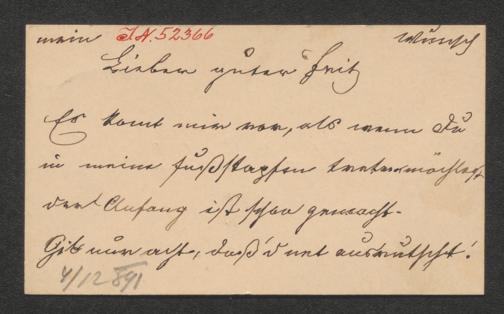 mein J.N. 52366 Wunsch
Lieber guter Fritz
Es komt mir vor, als wenn Du
in meine Fußstapfen treten möchtest
der Anfang ist schon gemacht.
Gib nur acht, daß d' net ausrutscht!
4/12 891